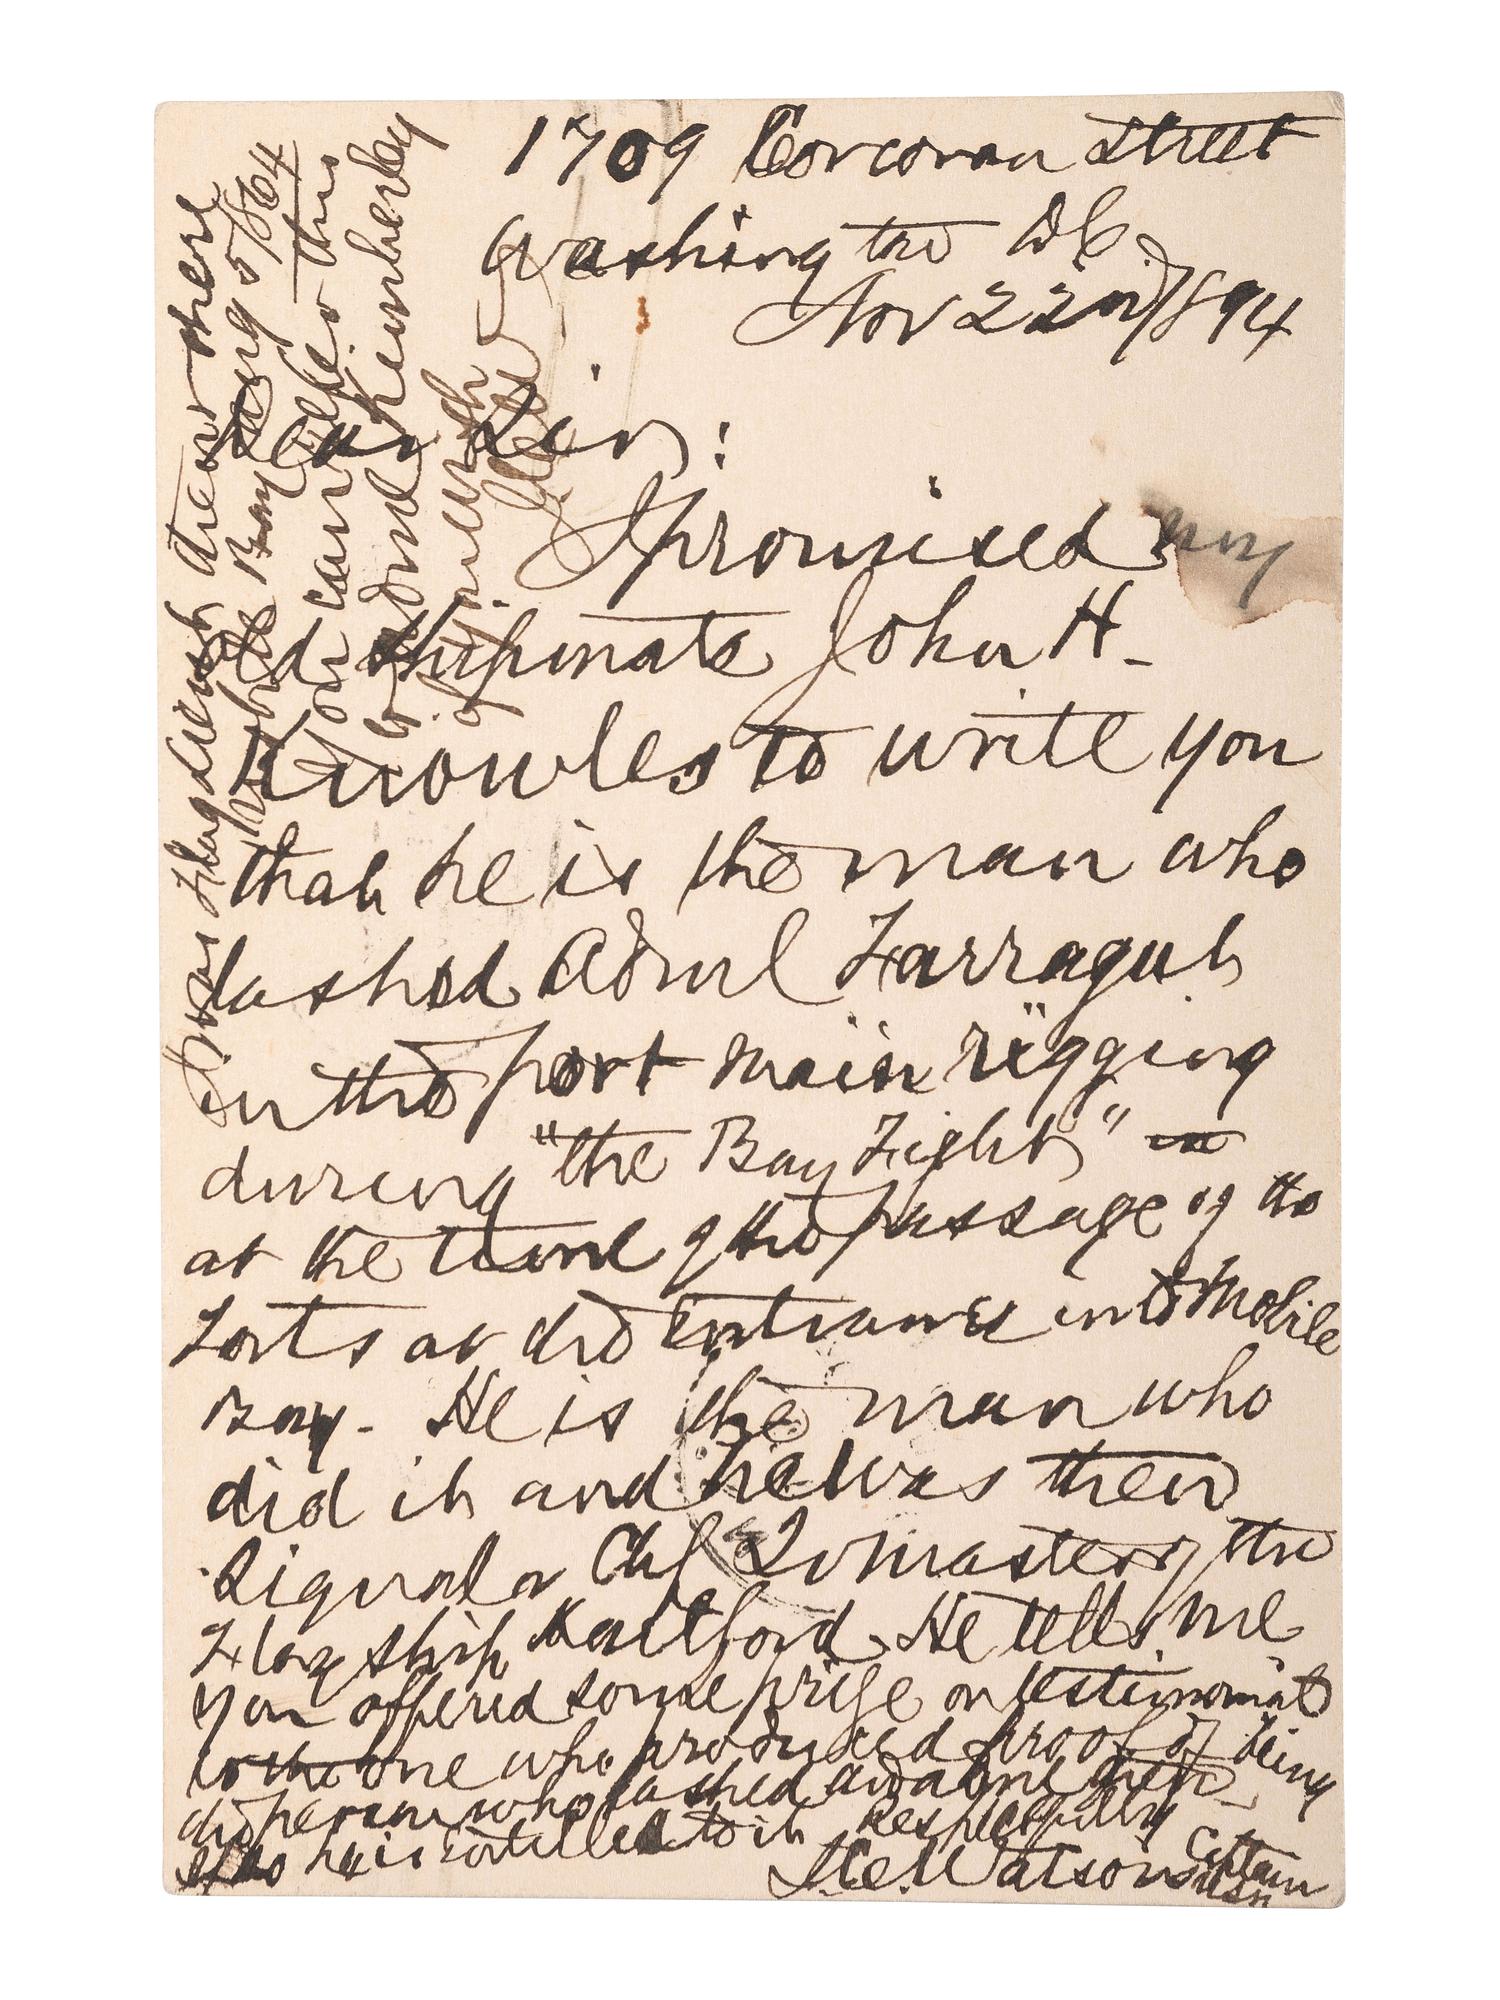 1709 Corcoran Street
Washington DC
Nov 22n/1894
Dear Sir:
I promised my
old shipmate John H.
Knowles to write you
that he is the man who
lashed Adml Farragut
in the port main rigging
during "the Bay Fight"
at the time of the passage of the
Forts at the entrance into Mobile
Bay. He is the man who
did it and he was then
Signal or Chf Qr master of the
Flag ship Hartford. He tells me
you offered some prize or testimonial
to the one who produced proof of being
the person who lashed and
he is entitled to it Respectfully
J. C. Watson Captain
USN
I was Flag Lieut then & there
Mobile Bay Aug 5 1864
You can refer this
to Adml Kimberly
if you wish